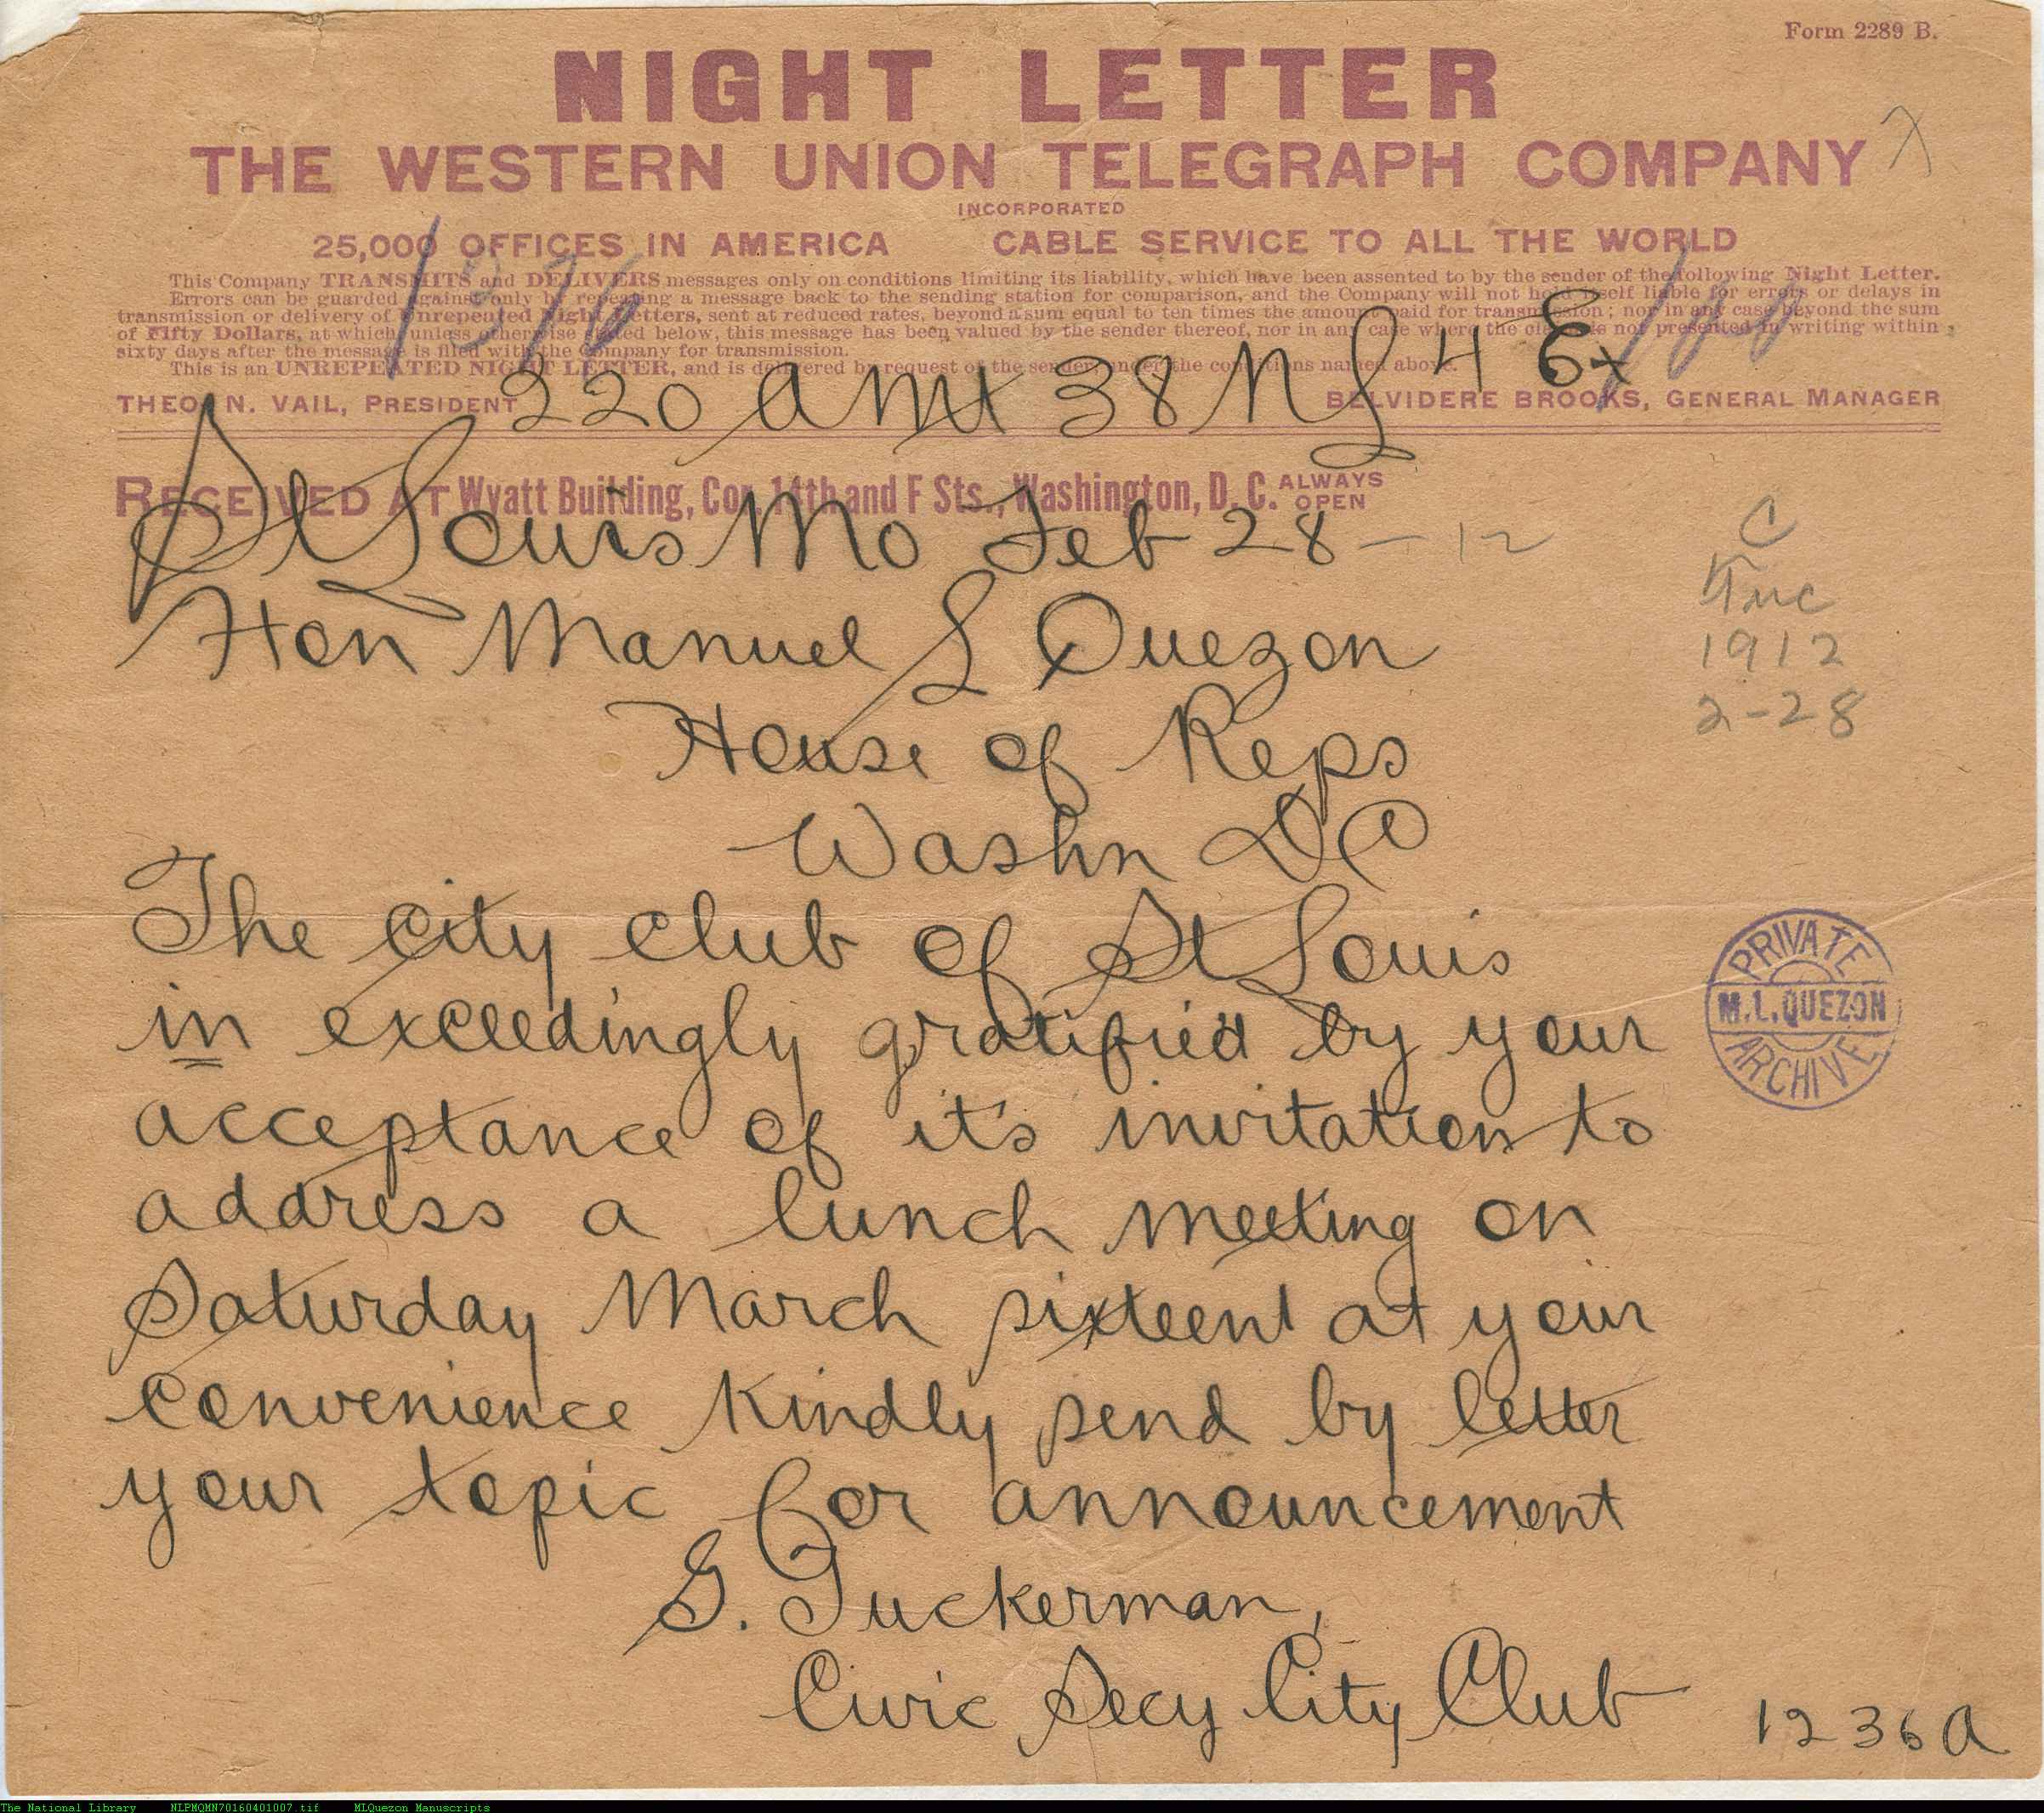 Form 2289 B.
NIGHT LETTER
THE WESTERN UNION TELEGRAPH COMPANY
INCORPORATED
25,000 OFFICES IN AMERICA CABLE SERVICE TO ALL THE WORLD
This Company TRANSMITS and DELIVERS messages only on conditions limiting its liability, which have been assented to by the sender of the following Night Letter.
Errors can be guarded against only by repeating a message back to the sending station for comparison, and the Company will not hold itself liable for errors or delays in
transmission or delivery of Unrepeated Night Letters, sent at reduced rates, beyond a sum equal to ten times the amount paid for transmission; nor in any case beyond the sum
of Fifty Dollars, at which, unless otherwise stated below, this message has been valued by the sender thereof, nor in any case where the claim is not presented in writing within
sixty days after the message is filed with the Company for transmission.
This is an UNREPEATED NIGHT LETTER, and is delivered by request of the sender, under the conditions named above.
THEO. N. VAIL, PRESIDENT BELVIDERE BROOKS, GENERAL MANAGER
220 38 NL 4 Ex
RECEIVED AT Wyatt Building, Cor. 14th and F Sts., Washington, D. C. ALWAYS OPEN
St Louis Mo Feb 28 - 12
Hon Manuel L Quezon
House of Reps
Washn DC
C
1912
2-28
The city club of St Louis
in exceedingly gratified by your
acceptance of it's invitation to
address a lunch meeting on
Saturday March sixteent at your
convenience kindly send by letter
your topic for announcement
G. Tuckerman,
Civic Secy City Club
1236A
PRIVATE
M.L.QUEZON
ARCHIVE
The National Library NLPMQMN70160401007.tif MLQuezon Manuscripts